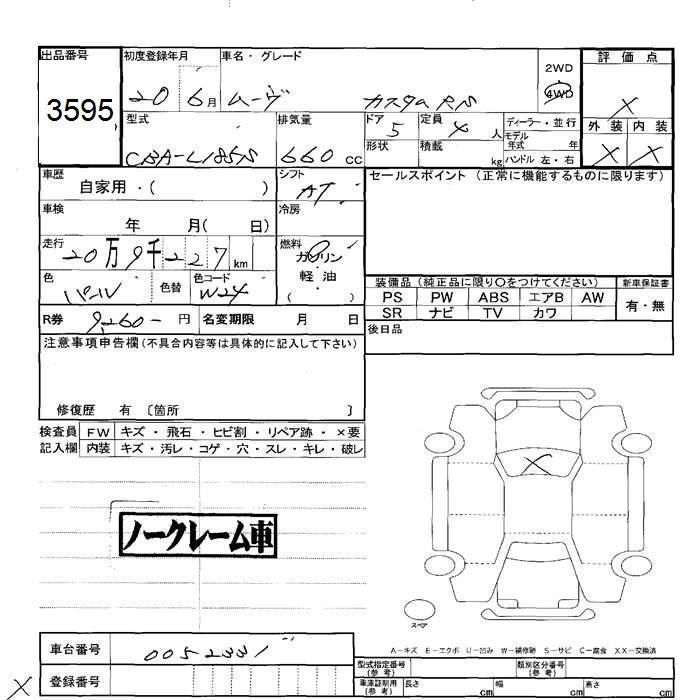 出品番号
3595
初度登録年月
20 6月
車名・グレード
ムーヴ カスタム RS
2WD
4WD
評価点
X
外装 内装
X X
型式
CBA-L185S
排気量
660 cc
ドア 5
形状
定員 4 人
積載 kg
ディーラー・並行
モデル年式 年
ハンドル 左・右
車歴
自家用・( )
シフト
AT
車検
年 月( 日)
冷房
走行
20万9千227 km
燃料
ガソリン
軽油
( )
色
パール
色替
色コード
W24
R券 9,260- 円
名変期限 月 日
セールスポイント (正常に機能するものに限ります)
装備品 (純正品に限り○をつけてください)
新車保証書
PS PW ABS エアB AW
SR ナビ TV カワ
有・無
後日品
注意事項申告欄(不具合内容等は具体的に記入して下さい)
修復歴 有 〔箇所 〕
検査員記入欄
FW キズ・飛石・ヒビ割・リペア跡・×要
内装 キズ・汚レ・コゲ・穴・スレ・キレ・破レ
X
ノークレーム車
スペア
A-キズ E-エクボ U-凹み W-補修跡 S-サビ C-腐食 XX-交換済
車台番号
0052331
登録番号
X
型式指定番号(参考)
類別区分番号(参考)
車庫証明用(参考) 長さ cm 幅 cm 高さ cm